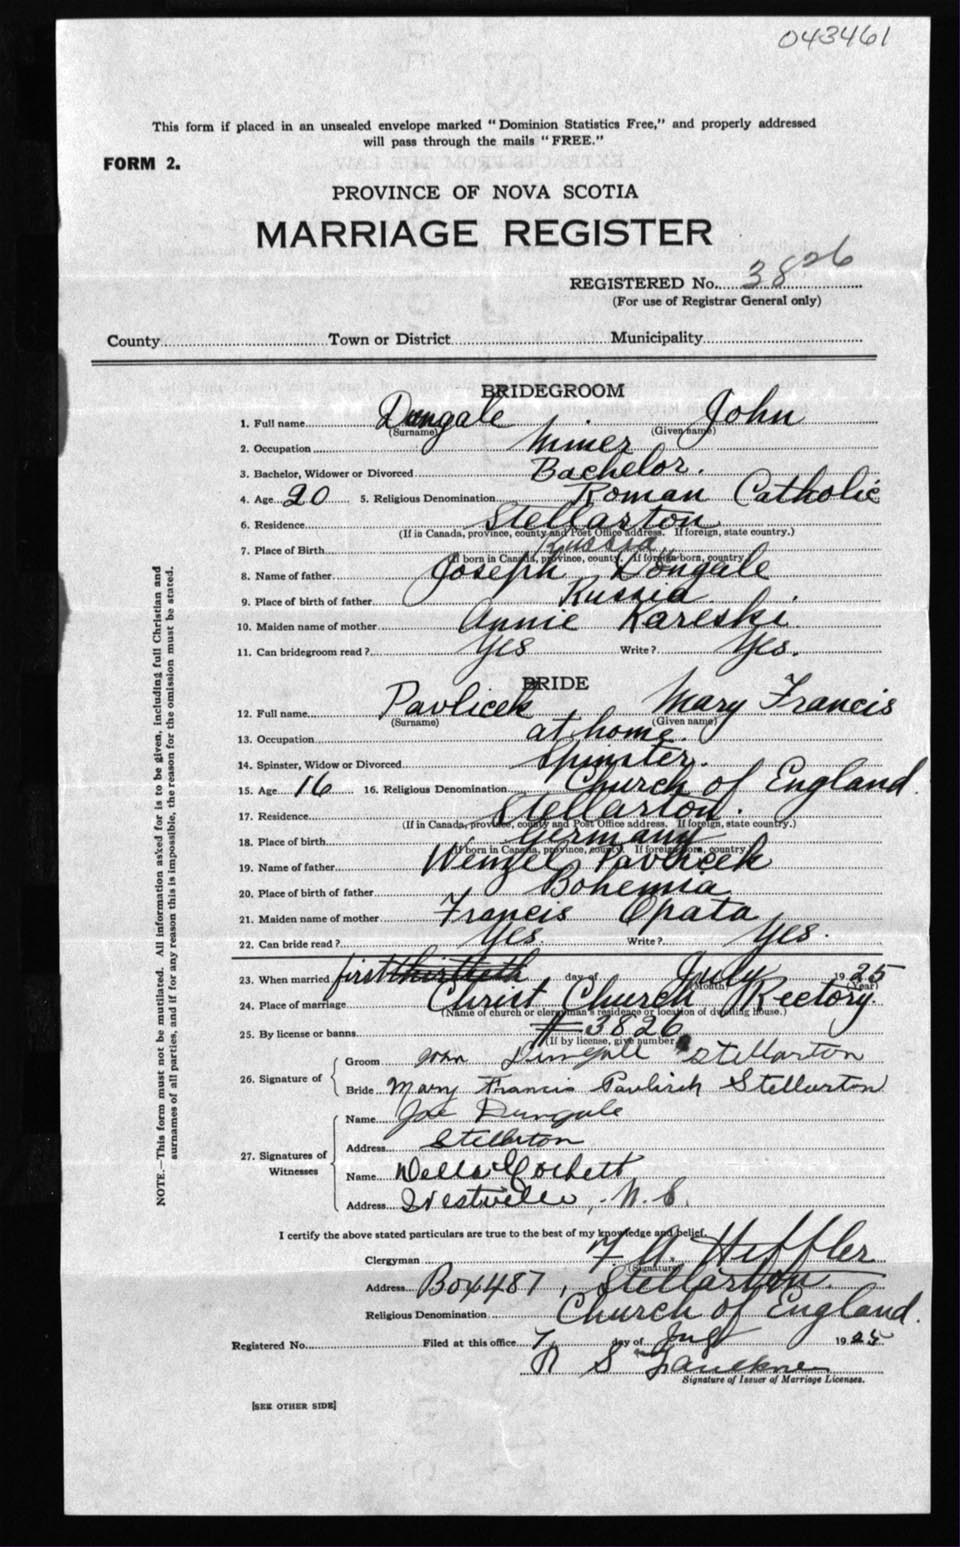 043461
This form if placed in an unsealed envelope marked "Dominion Statistics Free," and properly addressed
will pass through the mails "FREE."
FORM 2.
PROVINCE OF NOVA SCOTIA
MARRIAGE REGISTER
REGISTERED No. 3826
(For use of Registrar General only)
County Town or District Municipality
BRIDEGROOM
1. Full name Dungale John
(Surname) (Given name)
2. Occupation Miner
3. Bachelor, Widower or Divorced Bachelor.
4. Age 20 5. Religious Denomination Roman Catholic
6. Residence Stellarton
(If in Canada, province, county and Post Office address. If foreign, state country.)
7. Place of Birth Russia
(If born in Canada, province, county. If foreign-born, country
8. Name of father Joseph Dongale
9. Place of birth of father Russia
10. Maiden name of mother Annie Kareski
11. Can bridegroom read? Yes Write? Yes.
BRIDE
12. Full name Pavlicek Mary Francis
(Surname) (Given name)
13. Occupation at home.
14. Spinster, Widow or Divorced Spinster.
15. Age 16 16. Religious Denomination Church of England.
17. Residence Stellarton.
(If in Canada, province, county and Post Office address. If foreign, state country.)
18. Place of birth Germany
(If born in Canada, province, county. If foreign-born, country
19. Name of father Wenzel Pavlicek
20. Place of birth of father Bohemia
21. Maiden name of mother Francis Opata
22. Can bride read? Yes. Write? Yes.
23. When married first thirtieth day of July 1925
(Month) (Year)
24. Place of marriage Christ Church Rectory.
(Name of church or clergyman's residence or location of dwelling house.)
25. By license or banns #3826
(If by license, give number
26. Signature of
Groom John Dungale Stellarton
Bride Mary Francis Pavlicek Stellarton
27. Signatures of Witnesses
Name Joe Dungale
Address Stellarton
Name Della
Address Westville, N.S.
I certify the above stated particulars are true to the best of my knowledge and belief.
Clergyman Heffler
(Signature)
Address Box 487, Stellarton.
Religious Denomination Church of England.
Registered No. Filed at this office 7 day of July 1925
S Faulkner
Signature of Issuer of Marriage Licenses.
[SEE OTHER SIDE]
NOTE.—This form must not be mutilated. All information asked for is to be given, including full Christian and
surnames of all parties, and if for any reason this is impossible, the reason for the omission must be stated.